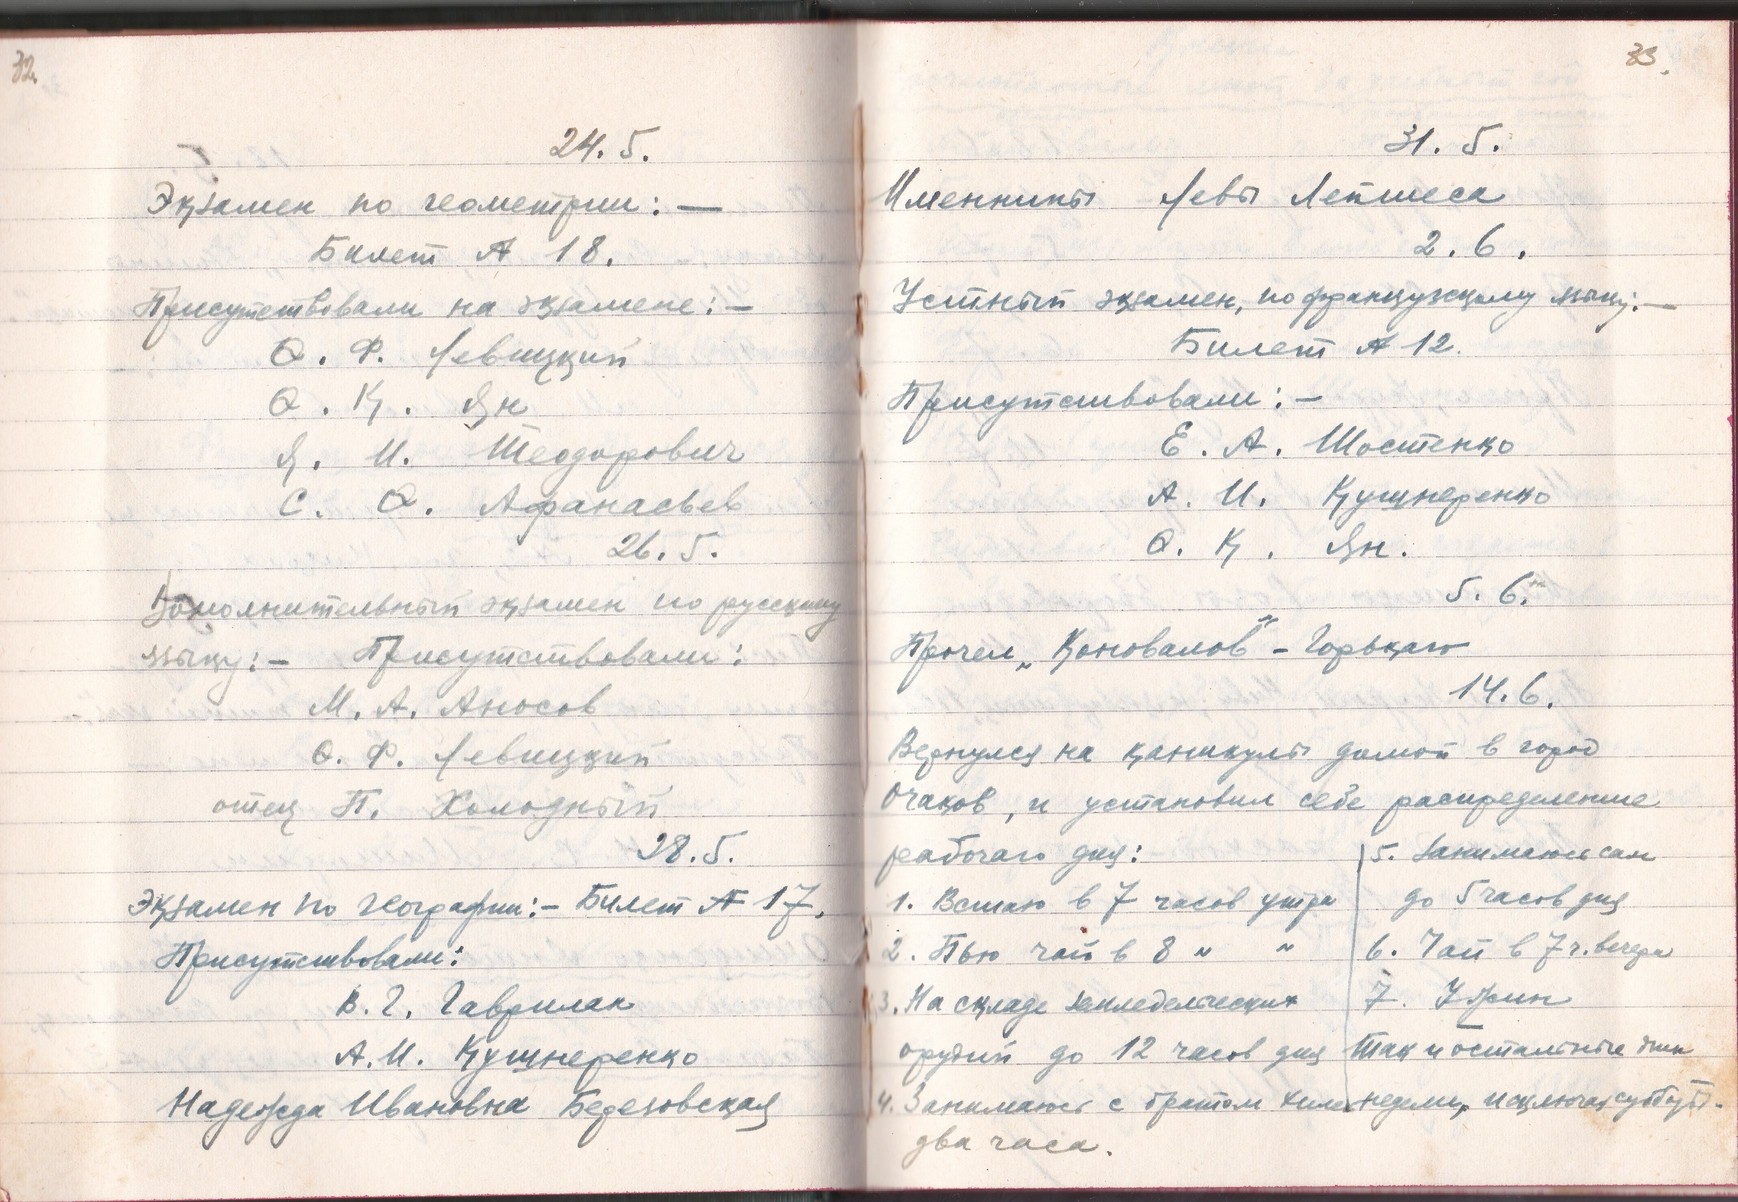 32.
24. 5.
Экзамен по геометрии: —
Билет № 18.
Присутствовали на экзамене: —
О. Ф. Левицкий
О. К. Ян
Я. И. Теодорович
С. О. Афанасьев
26. 5.
Дополнительный экзамен по русскому
языку: — Присутствовали:
М. А. Аносов
О. Ф. Левицкий
отец П. Холодный
28. 5.
Экзамен по географии: — Билет № 17.
Присутствовали:
В. Г. Гаврилак
А. И. Кушнеренко
Надежда Ивановна Березовская
33.
31. 5.
Именнины Левы Лейтеса
2. 6.
Устный экзамен, по французскому языку: —
Билет № 12.
Присутствовали: —
Е. А. Шостенко
А. И. Кушнеренко
О. К. Ян.
5. 6.
Прочел „Коновалов" - Горькаго
14. 6.
Вернулся на каникулы домой в город
Очаков, и установил себе распределение
рабочаго дня:
1. Встаю в 7 часов утра
2. Пью чай в 8 " "
3. На складе земледельческих
орудий до 12 часов дня
4. Занимаюсь с братом
два часа.
5. Занимаюсь сам
до 5 часов дня
6. Чай в 7 ч. вечера
7. Ужин
Так и остальные дни
недели, исключая субботы.